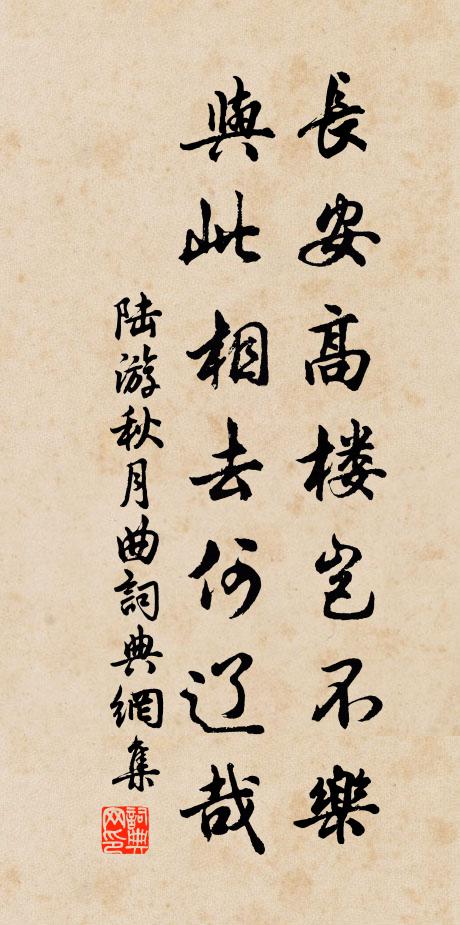 長安高楼岂不樂
與此相去何辽哉
陆游秋月曲詞典網集
詞典网印